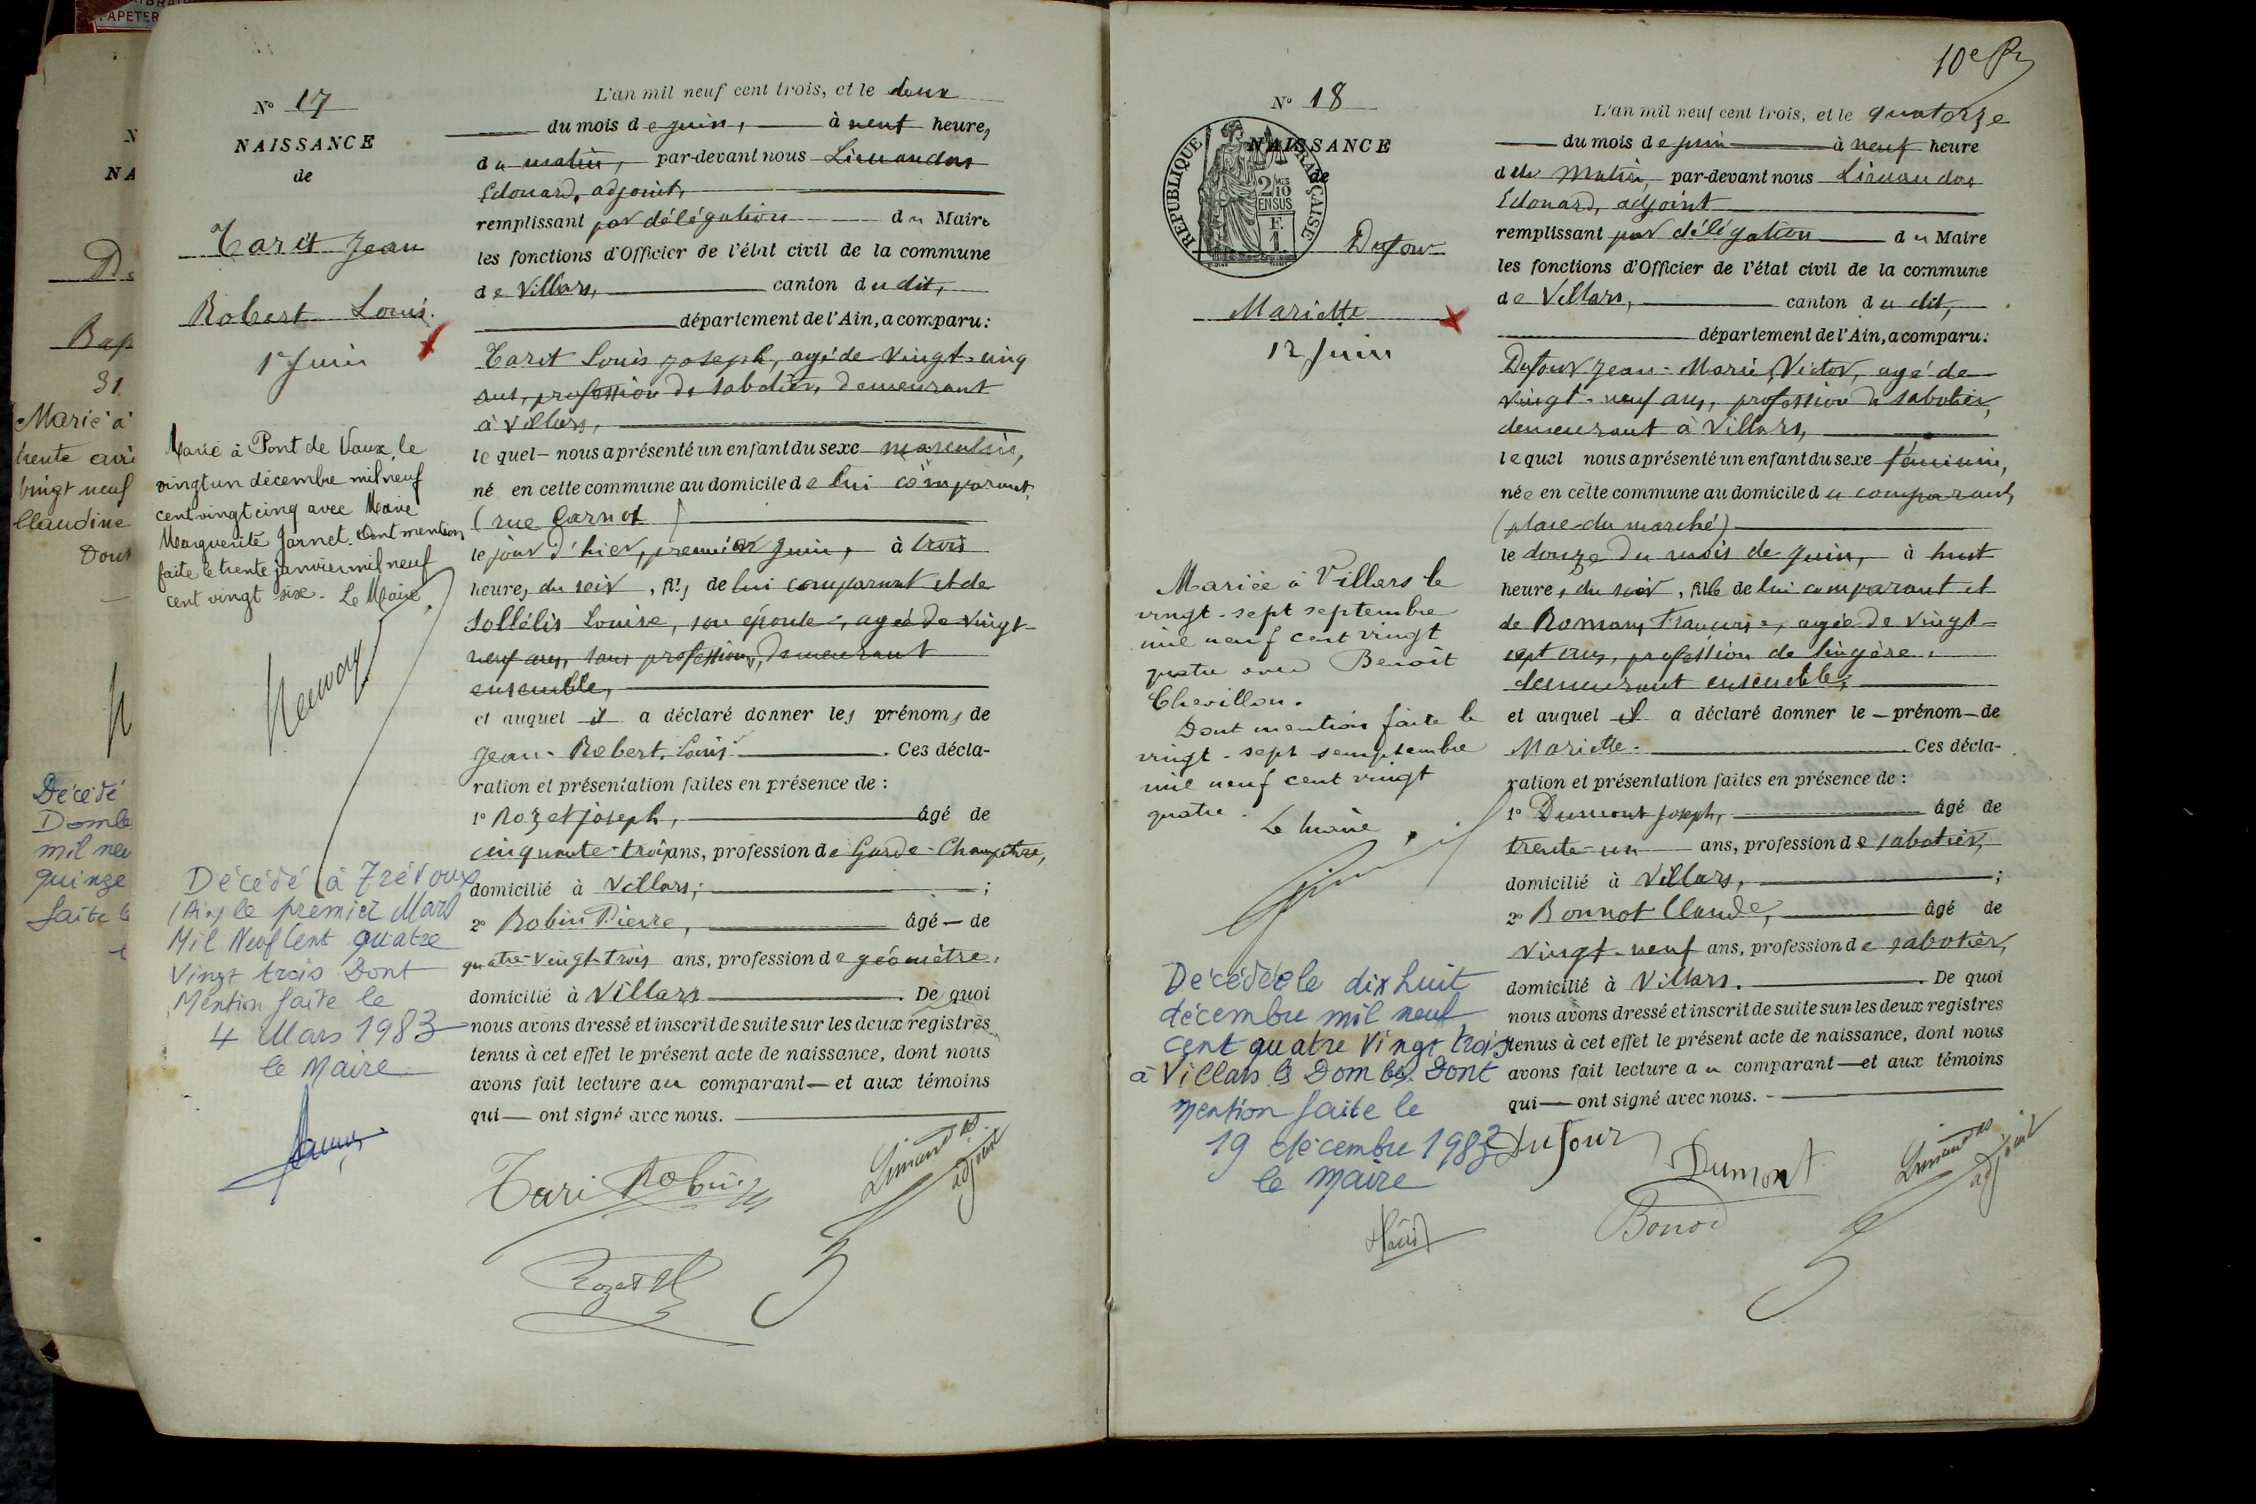 PAPETER
N
NA
De
Bap
31
Marié à
trente avri
vingt neuf
Claudine
Dont
Décédé
Domb
mil neu
quinze
faite le
N° 17
NAISSANCE
de
Tarit Jean
Robert Louis.
1er Juin
Marié à Pont de Vaux, le
vingt un décembre mil neuf
cent vingt cinq avec Marie
Marguerite Jarnet. Dont mention
faite le trente janvier mil neuf
cent vingt six. Le Maire
Décédé à Trévoux
(Ain) le premier Mars
Mil Neuf Cent quatre
Vingt trois Dont
Mention faite le
4 Mars 1983
le Maire
L'an mil neuf cent trois, et le deux
du mois de juin, à neuf heures
du matin, par-devant nous Limandas
Edouard, adjoint,
remplissant par délégation du Maire
les fonctions d'Officier de l'état civil de la commune
de Villars, canton du dit,
département de l'Ain, a comparu :
Tarit Louis Joseph, agé de vingt-cinq
ans, profession de sabotier, demeurant
à Villars,
lequel nous a présenté un enfant du sexe masculin,
né en cette commune au domicile de lui comparant,
(rue Carnot)
le jour d'hier, premier juin, à trois
heures du soir, fils de lui comparant et de
Sollélis Louise, son épouse, agée de vingt-
neuf ans, sans profession, demeurant
ensemble,
et auquel il a déclaré donner les prénoms de
Jean-Robert-Louis. Ces décla-
ration et présentation faites en présence de :
1° Rozet Joseph, âgé de
cinquante-trois ans, profession de Garde-Champêtre,
domicilié à Villars, ;
2° Robin Pierre, âgé de
quatre-vingt-trois ans, profession de géomètre,
domicilié à Villars. De quoi
nous avons dressé et inscrit de suite sur les deux registres
tenus à cet effet le présent acte de naissance, dont nous
avons fait lecture au comparant et aux témoins
qui ont signé avec nous.
Tari Robin
Limandas
adjoint
Rozet
10e
N° 18
NAISSANCE
de
RÉPUBLIQUE FRANÇAISE
2/10
EN SUS
F.
1.
Dufour
Mariette
12 Juin
Mariée à Villars le
vingt-sept septembre
mil neuf cent vingt
quatre avec Benoît
Chevillon.
Dont mention faite le
vingt-sept semptembre
mil neuf cent vingt
quatre.
Le maire
Décédée le dix huit
décembre mil neuf
cent quatre Vingt trois
à Villars les Dombes. Dont
mention faite le
19 décembre 1983
le Maire
L'an mil neuf cent trois, et le quatorze
du mois de juin à neuf heure
du Matin, par-devant nous Limandas
Edouard, adjoint
remplissant par délégation du Maire
les fonctions d'Officier de l'état civil de la commune
de Villars, canton du dit,
département de l'Ain, a comparu :
Dufour Jean-Marie Victor, agé de
vingt-neuf ans, profession de sabotier,
demeurant à Villars,
lequel nous a présenté un enfant du sexe féminin,
née en cette commune au domicile du comparant,
(place du marché)
le douze du mois de juin, à huit
heures du soir, fille de lui comparant et
de Romans Françoise, agée de vingt-
sept ans, profession de lingère,
demeurant ensemble,
et auquel il a déclaré donner le prénom de
Mariette. Ces décla-
ration et présentation faites en présence de :
1° Dumont Joseph, âgé de
trente-un ans, profession de sabotier,
domicilié à Villars, ;
2° Bonnot Claude, âgé de
vingt-neuf ans, profession de sabotier,
domicilié à Villars. De quoi
nous avons dressé et inscrit de suite sur les deux registres
tenus à cet effet le présent acte de naissance, dont nous
avons fait lecture au comparant et aux témoins
qui ont signé avec nous.
Dufour
Dumont
Limandas
adjoint
Bonod